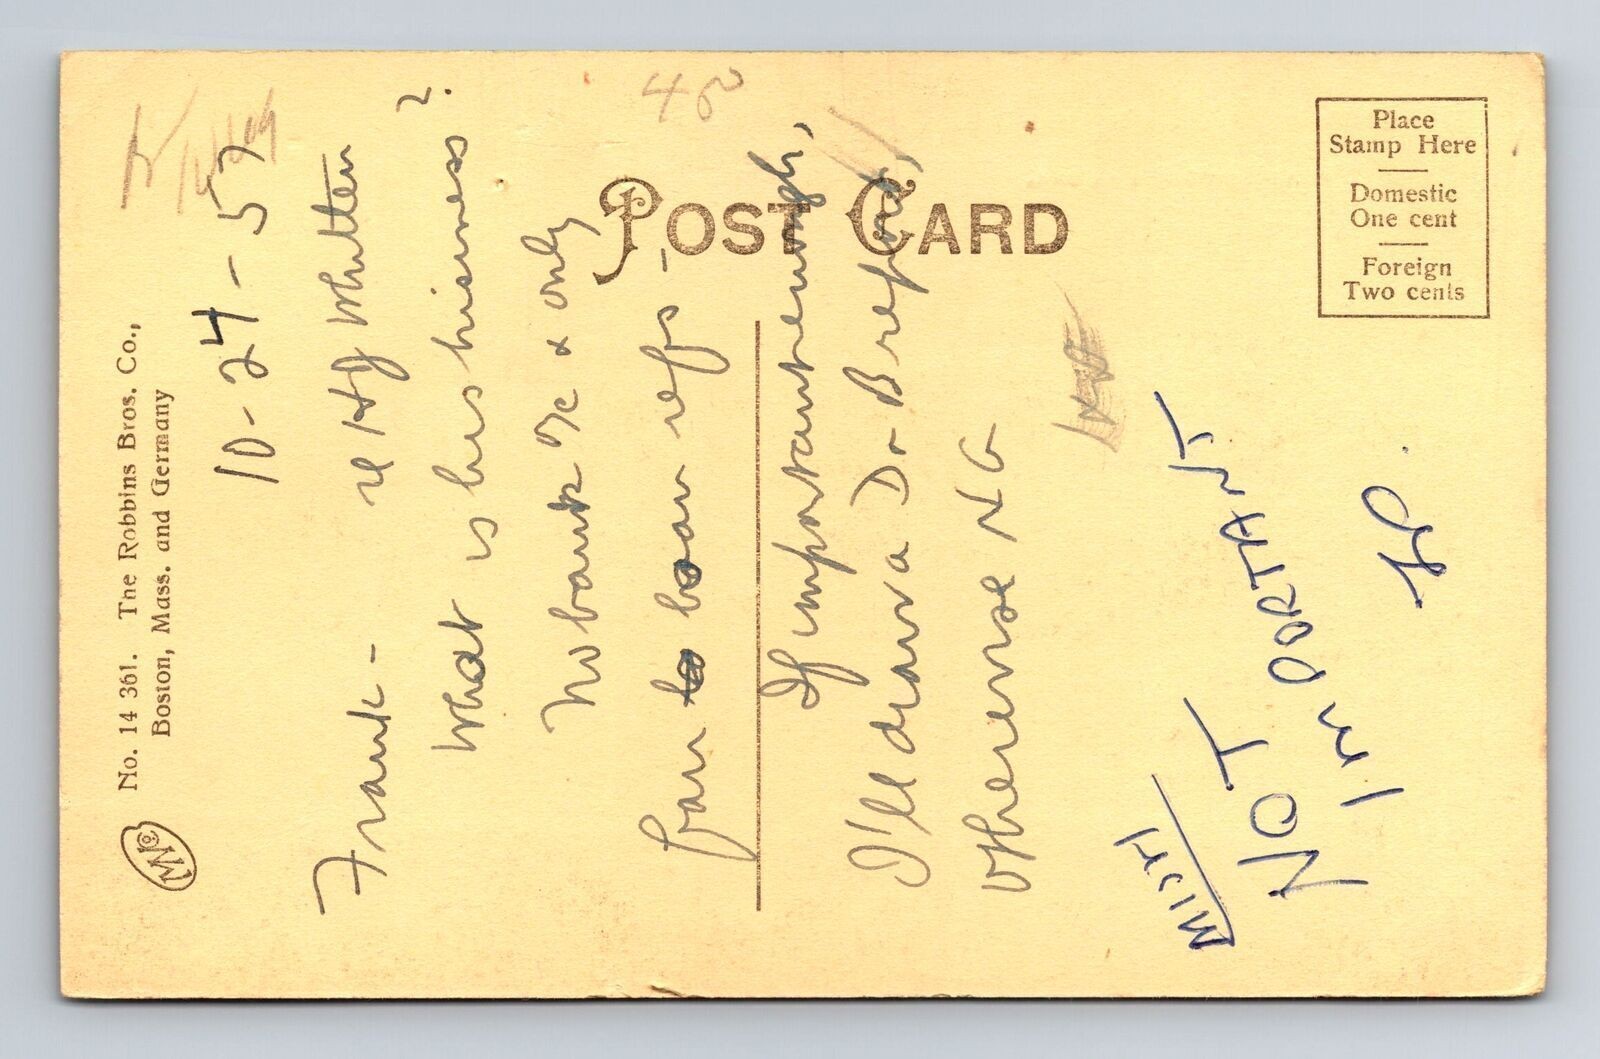 No. 14 361. The Robbins Bros. Co.,
Boston, Mass. and Germany
POST CARD
Place
Stamp Here
Domestic
One cent
Foreign
Two cents
45
10-24-57
Frank - re HJ Whitten
What is his business?
No bank % & only
loan refs -
If important enough,
I'll draw a Dr Brepord,
Otherwise NG
NOT
IMPORTANT